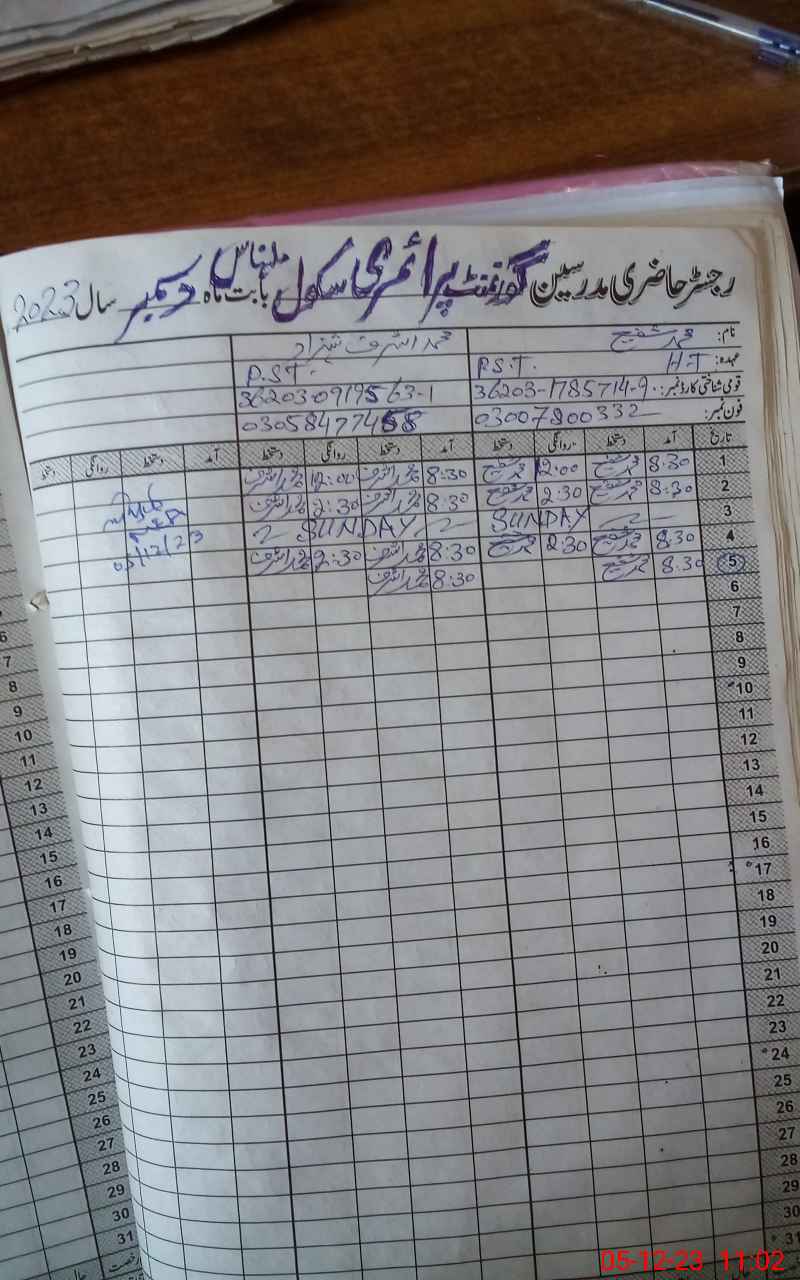 رجسٹر حاضری مدرسین گورنمنٹ پرائمری سکول ملہناس بابت ماہ دسمبر سال 2023
نام: محمد شفیع محمد اشرف شہزاد
عہدہ: H.T P.S.T. P.S.T.
قومی شناختی کارڈ نمبر: 36203-1785714-9 36203-0919563-1
فون نمبر: 03007800332 03058477458
تاریخ آمد دستخط روانگی دستخط آمد دستخط روانگی دستخط آمد دستخط روانگی دستخط
1 8:30 محمد شفیع 12:00 محمد شفیع 8:30 محمد اشرف 12:00 محمد اشرف
2 8:30 محمد شفیع 2:30 محمد شفیع 8:30 محمد اشرف 2:30 محمد اشرف
3 SUNDAY SUNDAY
4 8:30 محمد شفیع 2:30 محمد شفیع 8:30 محمد اشرف 2:30 محمد اشرف
5 8:30 محمد شفیع 8:30 محمد اشرف
05/12/23
6
7
8
9
10
11
12
13
14
15
16
17
18
19
20
21
22
23
24
25
26
27
28
29
30
31
6
7
8
9
10
11
12
13
14
15
16
17
18
19
20
21
22
23
24
25
26
27
28
29
30
31
رخصت
05-12-23 11:02